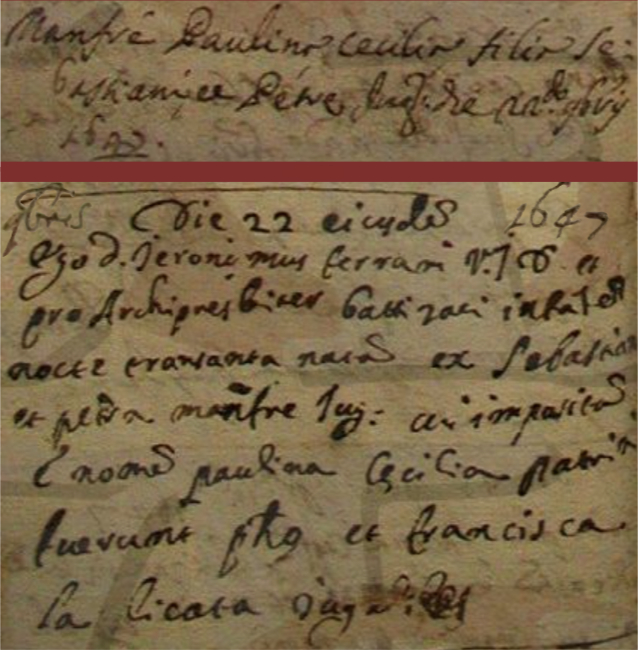 Manfré Paulina cecilia filia Se:
bastiani, et Petre Jug: die 22 9bris
1647.
9bris Die 22 eiusdē 1647
Ego d. Jeronimus ferrari V.J.D. et
pro Archipresbiter battizavi infatē
nocte transanta natā ex Sebastian
et petra manfre Jug: cui impositū
ē nomē paulina Cecilia patrin
fuerunt pho et francisca
la licata jugales